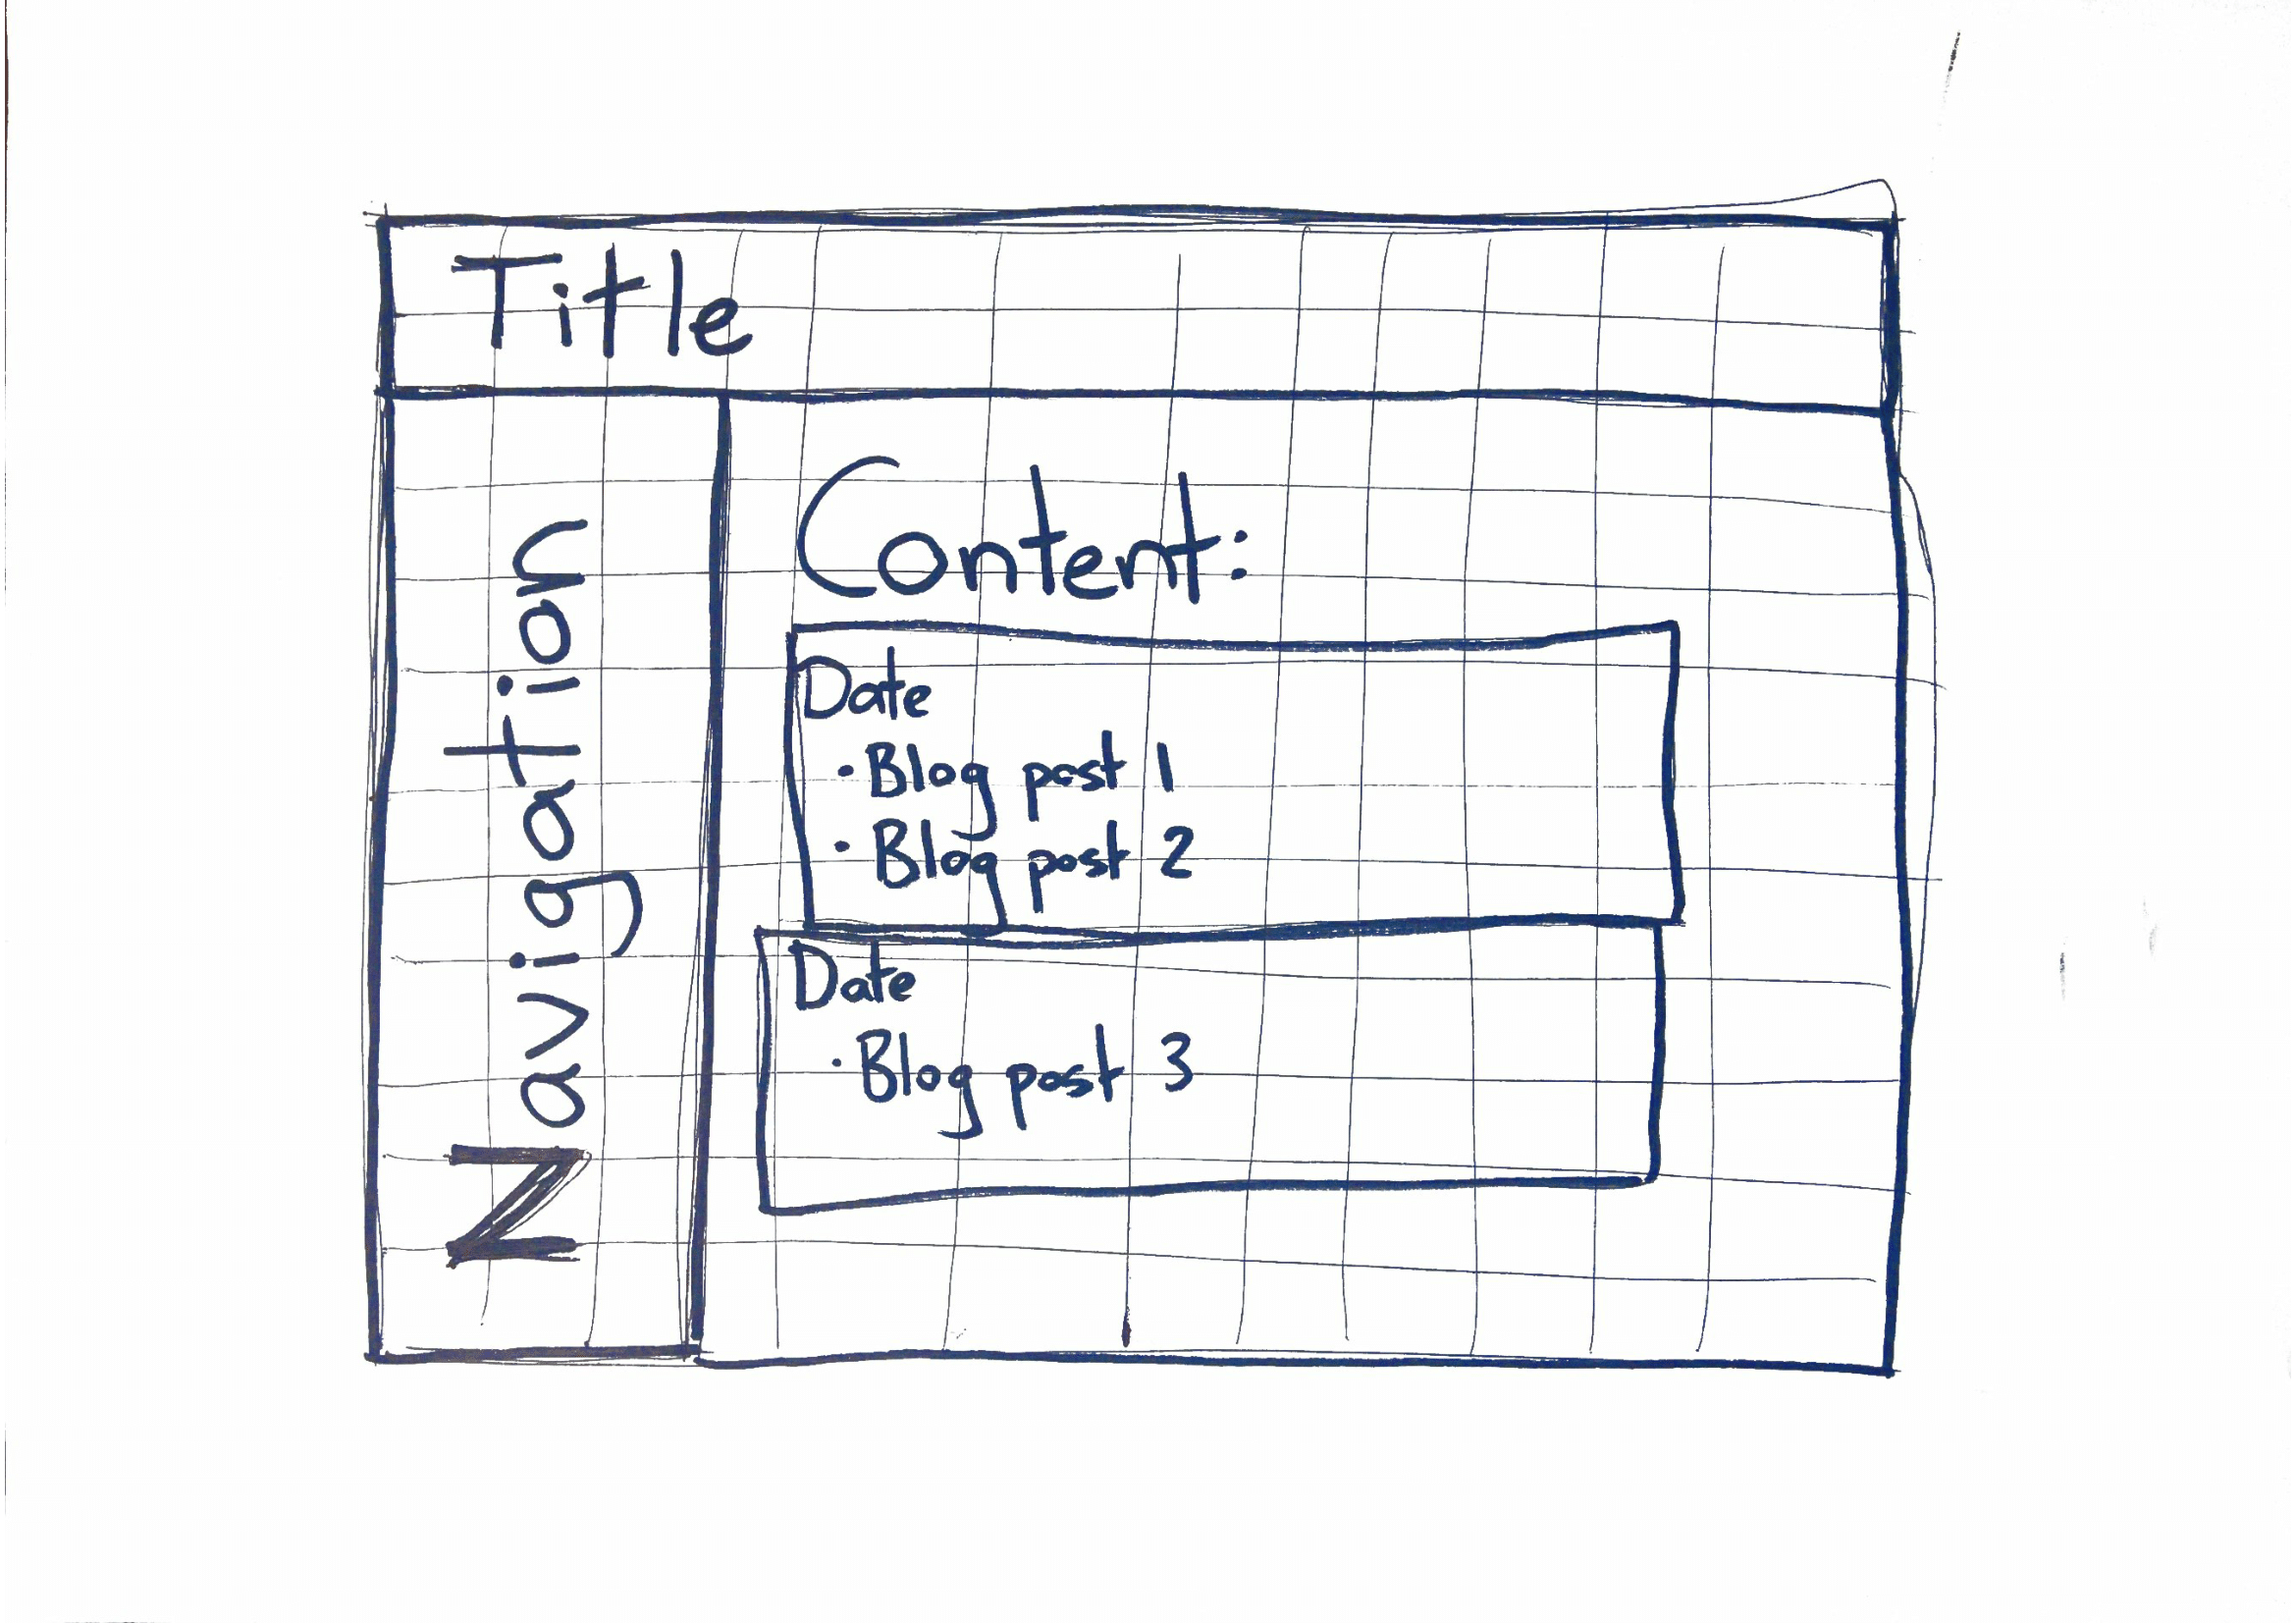 Title
Navigation
Content:
Date
· Blog post 1
· Blog post 2
Date
· Blog post 3